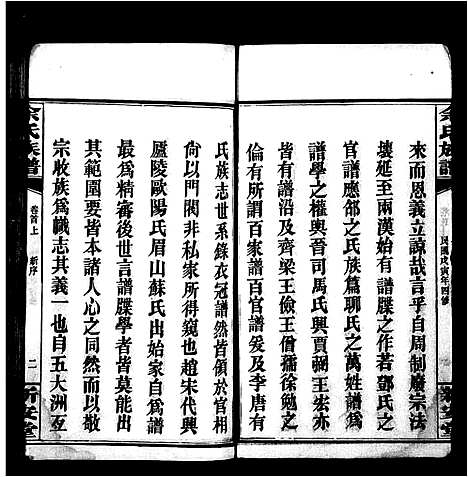 余氏族譜
民國戊寅年四修
新安堂
來而恩義立諒哉言乎自周制廢宗法
壞延至兩漢始有講求若鄧氏之
官譜應邵之氏族篇聊氏之萬姓譜
譜學之權輿晉司馬氏興賈弼王宏亦
皆有譜及齊梁王儉王僧孺徐勉之
倫有所謂百家譜百官譜爰及李唐有
氏族志世系錄衣冠譜然皆領於官相
尙以門閥非私家所得窺也趙宋代興
廬陵歐陽氏眉山蘇氏出始家自爲譜
最爲精審後世言譜牒學者皆莫能出
其範圍要皆本諸人心之同然而以敬
宗收族爲幟志其義一也自五大洲互
余氏族譜
卷首上
新序
二
新安堂